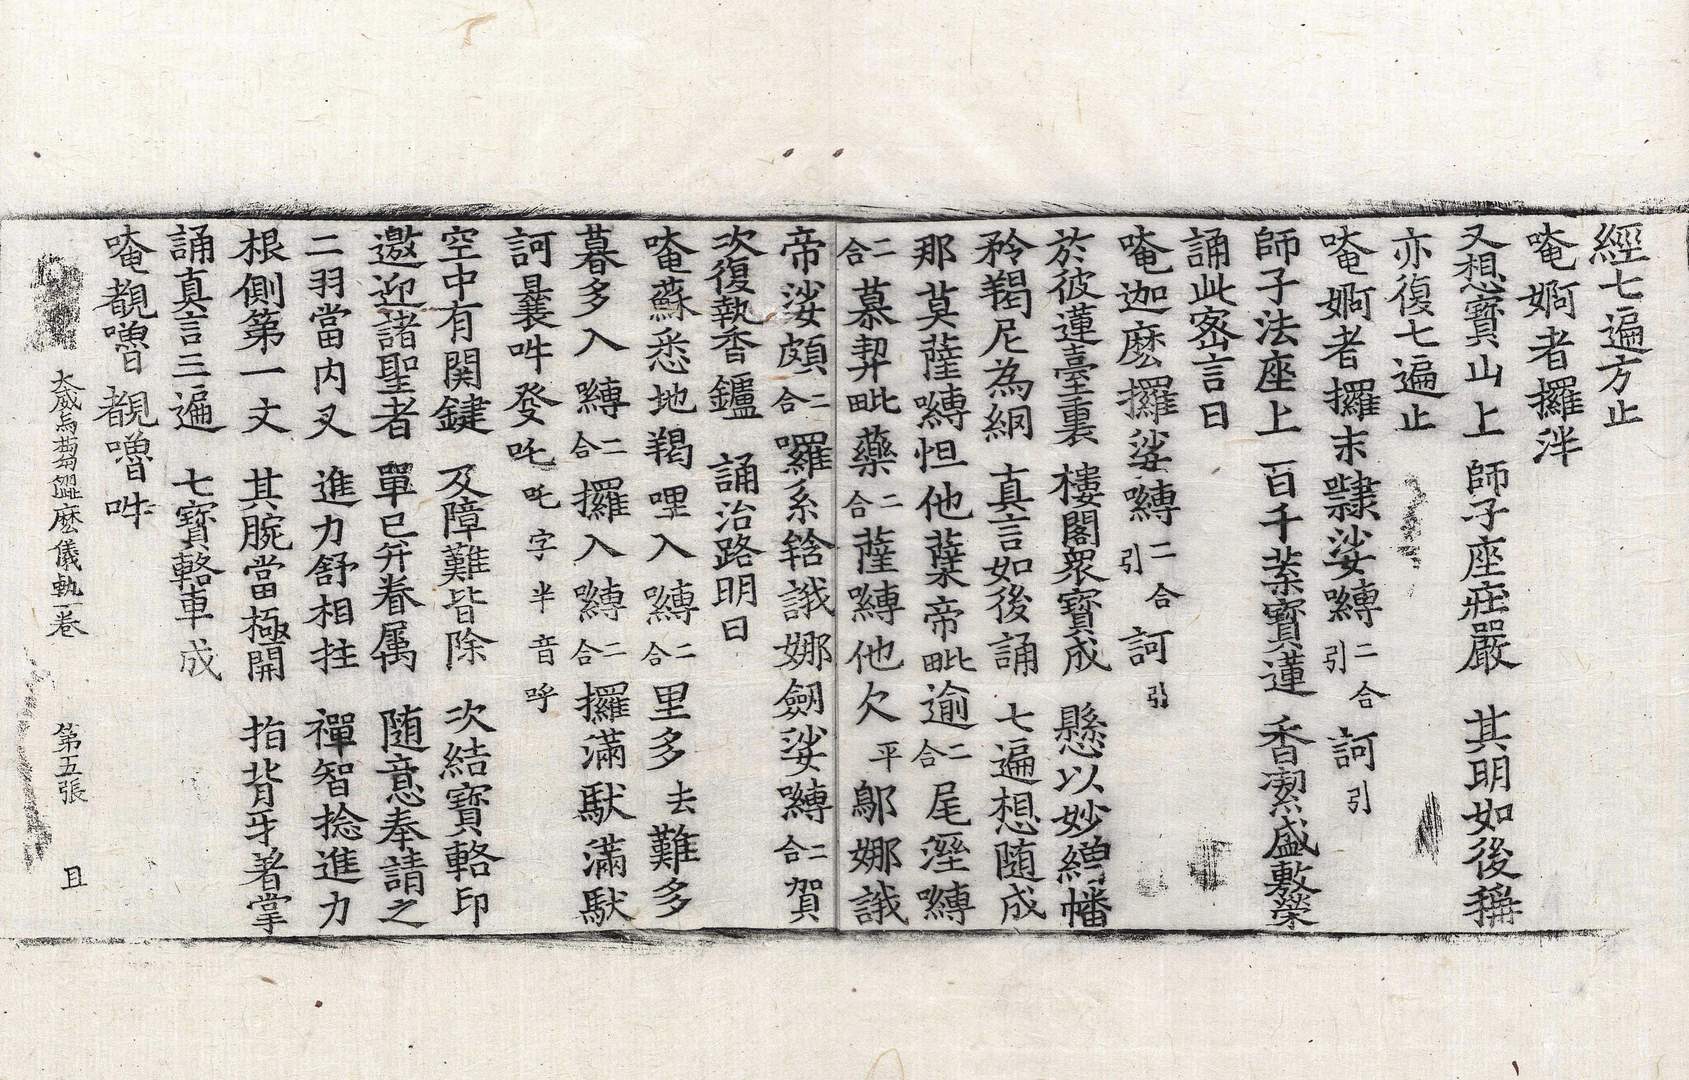 經七遍方止
唵婀者攞泮
又想寶山上 師子座莊嚴 其明如後稱
亦復七遍止
唵婀者攞末隸娑嚩二合引訶引
師子法座上 百千葉寶蓮 香潔盛敷榮
誦此密言曰
唵迦麽攞娑嚩二合引訶引
於彼蓮臺裏 樓閣衆寶成 懸以妙繒幡
矜羯尼為網 真言如後誦 七遍想随成
那莫薩嚩怛他櫱帝毗逾二合尾溼嚩
二合慕契毗藥二合薩嚩他欠平鄔娜誐
帝娑頗二合囉系𤚥誐娜劒娑嚩二合賀
次復執香鑪 誦治路明曰
唵蘇悉地羯哩入嚩二合里多去難多
暮多入嚩二合攞入嚩二合攞滿馱滿馱
訶曩囊吽發吒吒字半音呼
空中有関鍵 及障難皆除 次結寶輅印
邀迎諸聖者 單已并眷属 随意奉請之
二羽當内叉 進力舒相拄 禪智捻進力
根側第一文 其腕當極開 指背牙著掌
誦真言三遍 七寶輅車成
唵覩嚕覩嚕吽
大威烏蒭澁麽儀軌一卷 第五張 且